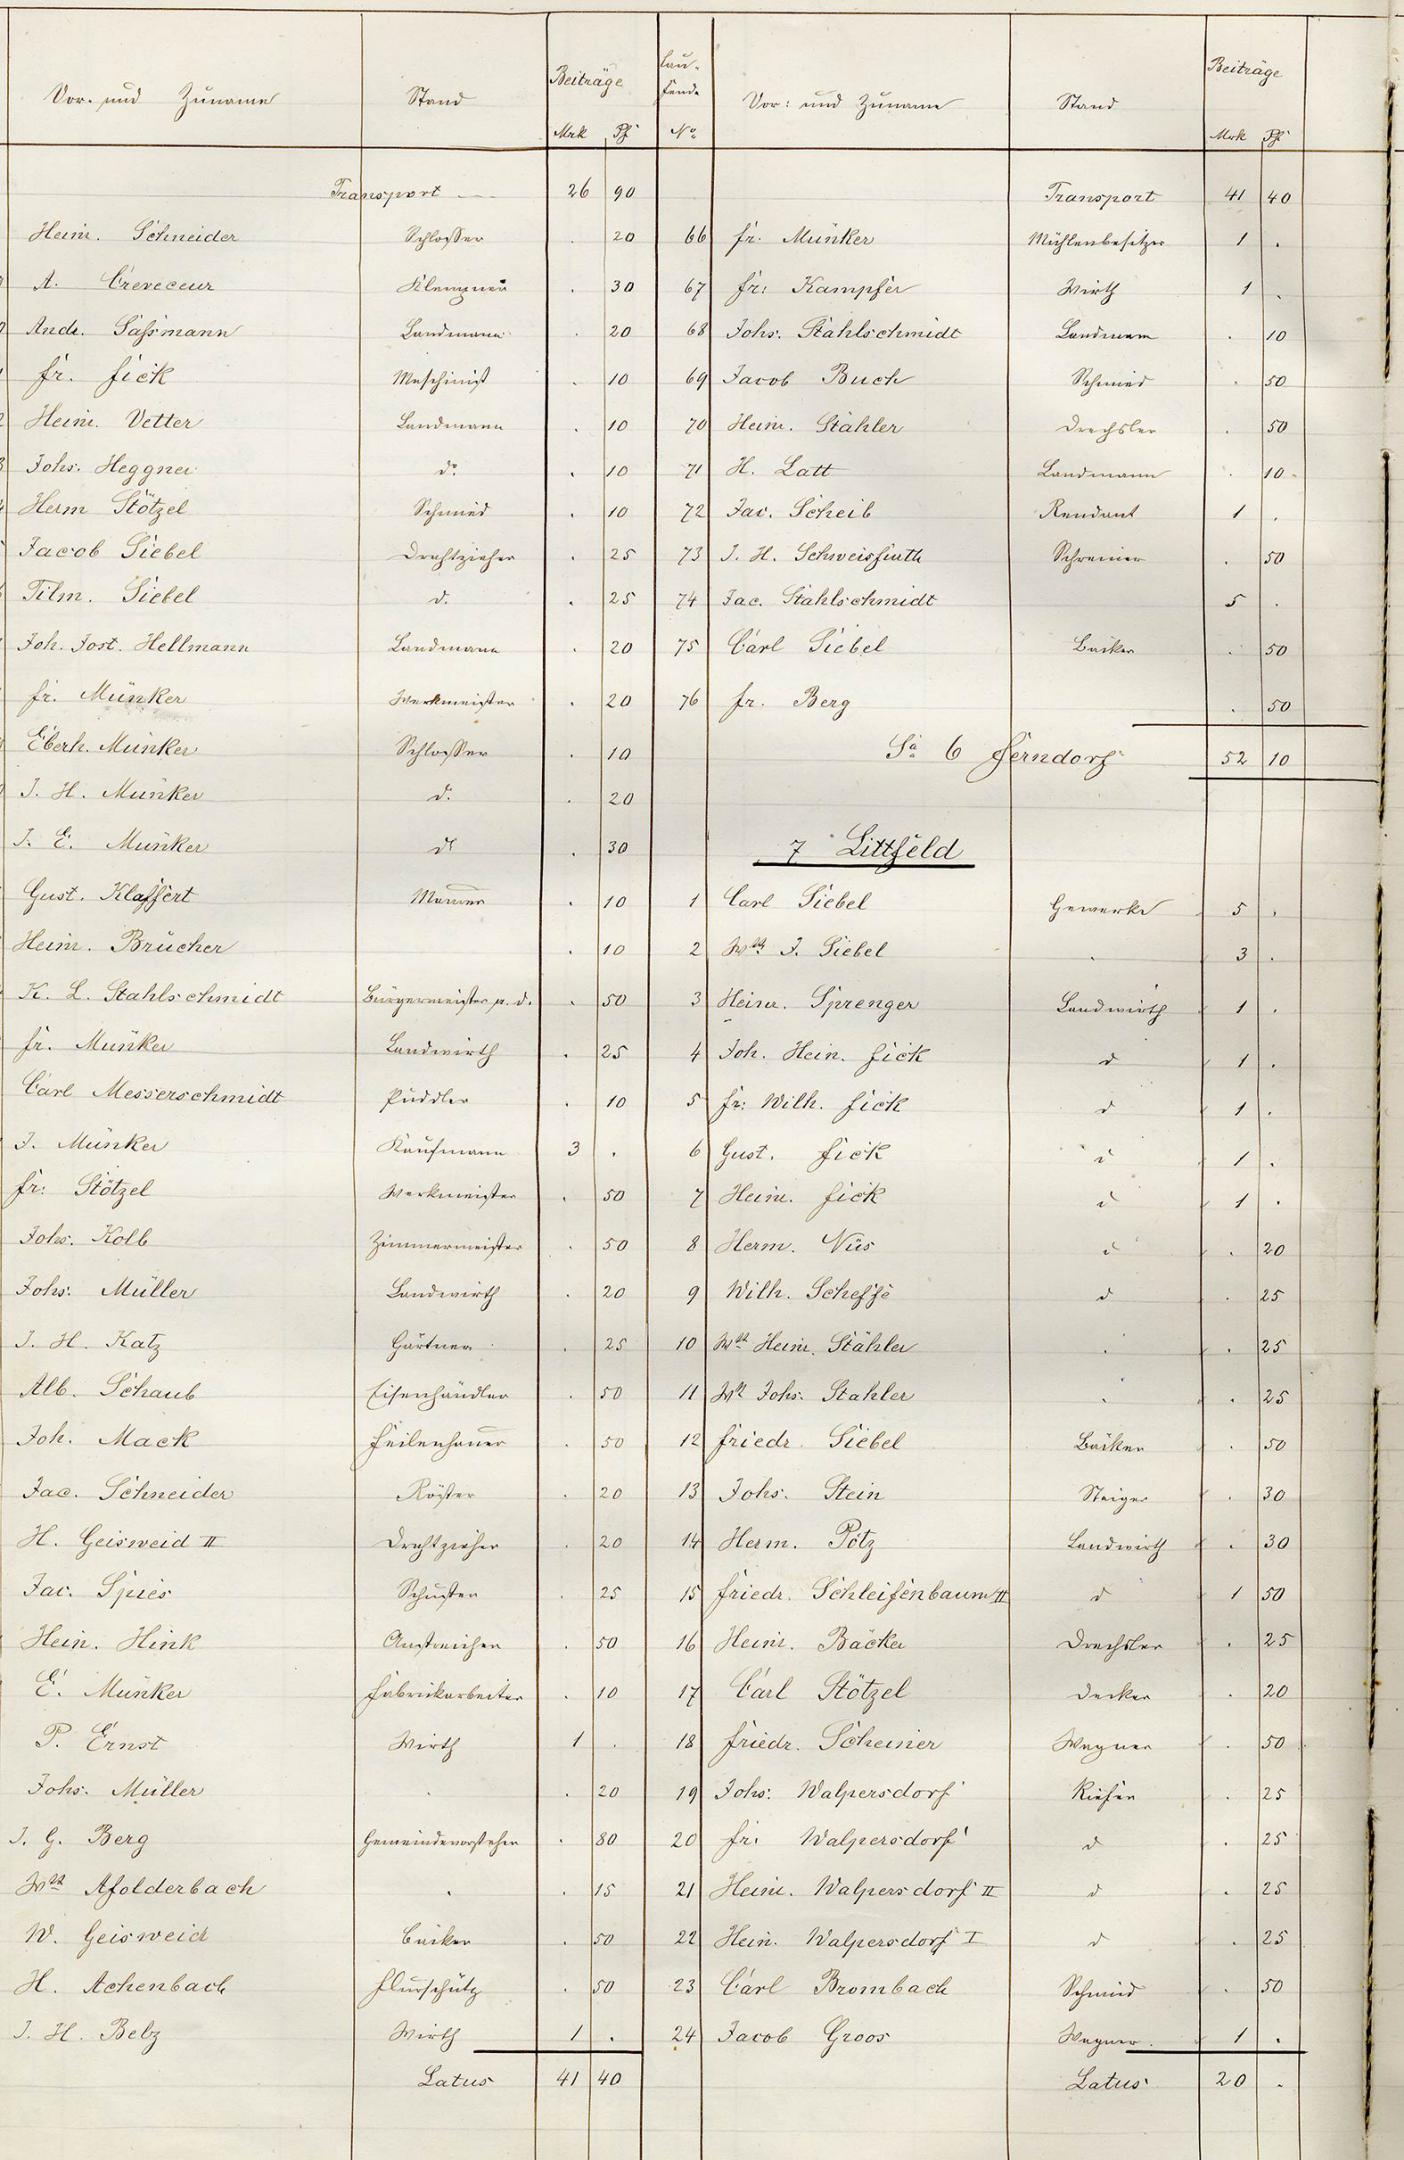 Vor- und Zuname Stand Beiträge Mrk Pf
Transport 26 90
Heinr. Schneider Schlosser . 20
A. Creveceur Klempner . 30
Andr. Sassmann Landmann . 20
Fr. Fick Maschinist . 10
Heinr. Vetter Landmann . 10
Johs. Heggner do . 10
Herm Stötzel Schmied . 10
Jacob Siebel Drahtzieher . 25
Tilm. Siebel d. . 25
Joh. Jost. Hellmann Landmann . 20
Fr. Münker Werkmeister . 20
Eberh. Münker Schlosser . 10
J. H. Münker d. . 20
J. E. Münker do . 30
Gust. Klaffert Maurer . 10
Heinr. Brücher . 10
K. L. Stahlschmidt Bürgermeister a. d. . 50
Fr. Münker Landwirth . 25
Carl Messerschmidt Puddler . 10
J. Münker Kaufmann 3 .
Fr: Stötzel Werkmeister . 50
Johs. Kolb Zimmermeister . 50
Johs. Müller Landwirth . 20
J. H. Katz Gärtner . 25
Alb. Schaub Eisenhändler . 50
Joh. Mack Feilenhauer . 50
Jac. Schneider Röster . 20
H. Geisweid II Drahtzieher . 20
Jac. Spies Schuster . 25
Hein. Hink Anstreicher . 50
E. Münker Fabrikarbeiter . 10
P. Ernst Wirth 1 .
Johs. Müller . . 20
J. G. Berg Gemeindevorsteher . 80
Wtt Afolderbach . . 15
W. Geisweid Bäcker . 50
H. Achenbach Flurschütz . 50
J. H. Belz Wirth 1 .
Latus 41 40
Lau-
fende
No Vor: und Zuname Stand Beiträge Mrk Pf
Transport 41 40
66 Fr. Münker Mühlenbesitzer 1 .
67 Fr: Kampfer Wirth 1 .
68 Johs. Stahlschmidt Landmann . 10
69 Jacob Buch Schmied . 50
70 Heinr. Stähler Drechsler . 50
71 H. Latt Landmann . 10
72 Jac. Scheib Rendant 1 .
73 J. H. Schweisfurth Schreiner . 50
74 Jac. Stahlschmidt 5 .
75 Carl Siebel Bäcker . 50
76 Fr. Berg . 50
Sa 6 Ferndorf 52 10
7 Littfeld
1 Carl Siebel Gewerke 5 .
2 Wtt J. Siebel . 3 .
3 Heinr. Sprenger Landwirth 1 .
4 Joh. Hein. Fick d 1 .
5 Fr: Wilh. Fick d 1 .
6 Gust. Fick d 1 .
7 Heinr. Fick d 1 .
8 Herm. Nüs d . 20
9 Wilh. Scheffe d . 25
10 Wtt Heinr. Stähler . . 25
11 Wtt Johs. Stahler . . 25
12 Friedr. Siebel Bäcker . 50
13 Johs. Stein Steiger . 30
14 Herm. Pötz Landwirth . 30
15 Friedr. Schleifenbaum II d 1 50
16 Heinr. Bäcker Drechsler . 25
17 Carl Stötzel Decker . 20
18 Friedr. Scheiner Wagner . 50
19 Johs. Walpersdorf Kiefer . 25
20 Fr: Walpersdorf d . 25
21 Heinr. Walpersdorf II d . 25
22 Hein. Walpersdorf I d . 25
23 Carl Brombach Schmied . 50
24 Jacob Groos Wagner 1 .
Latus 20 .